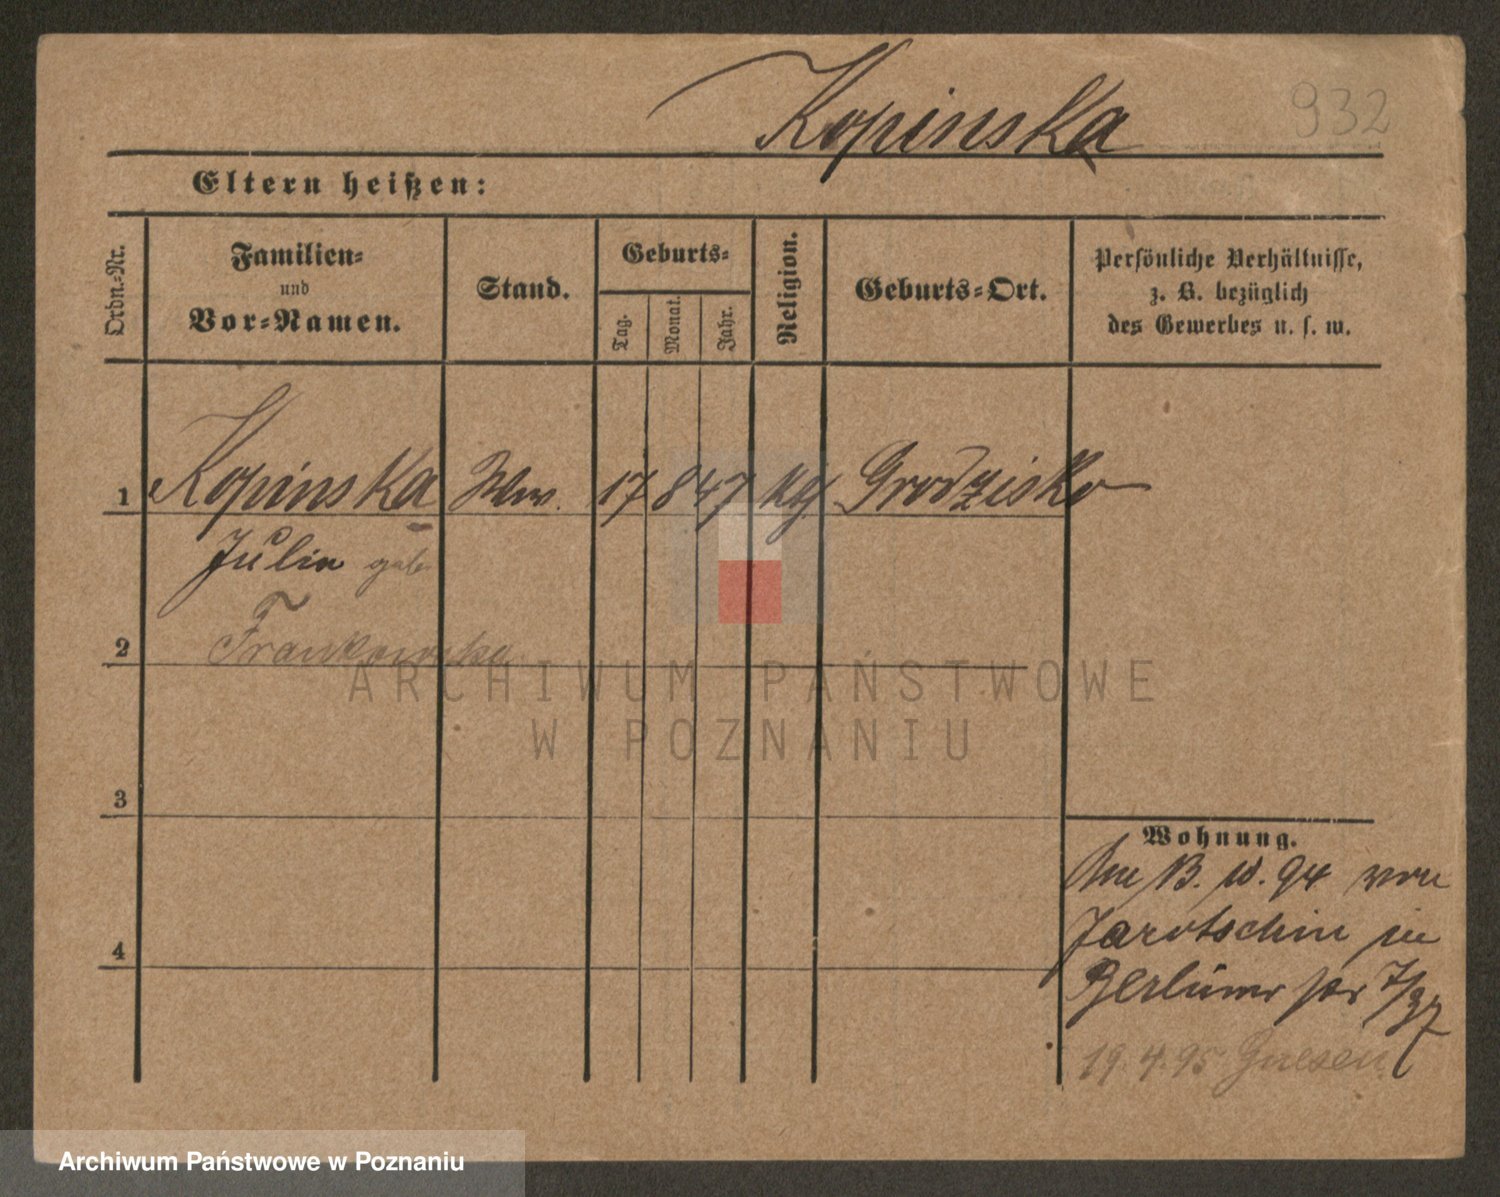 Kopinska 932
Eltern heißen:
Ordn.-Nr.
Familien-
und
Vor-Namen.
Stand.
Geburts-
Tag.
Monat.
Jahr.
Religion.
Geburts-Ort.
Persönliche Verhältnisse,
z. B. bezüglich
des Gewerbes u. s. w.
1 Kopinska Ww. 17 8 47 Grodzisko
Julia geb.
2 Frankowska
3
4
Wohnung.
Am 13. 10. 94 von
Jarotschin in
Berliner str 7/37
19. 4. 95 Gnesen
ARCHIWUM PAŃSTWOWE
W POZNANIU
Archiwum Państwowe w Poznaniu